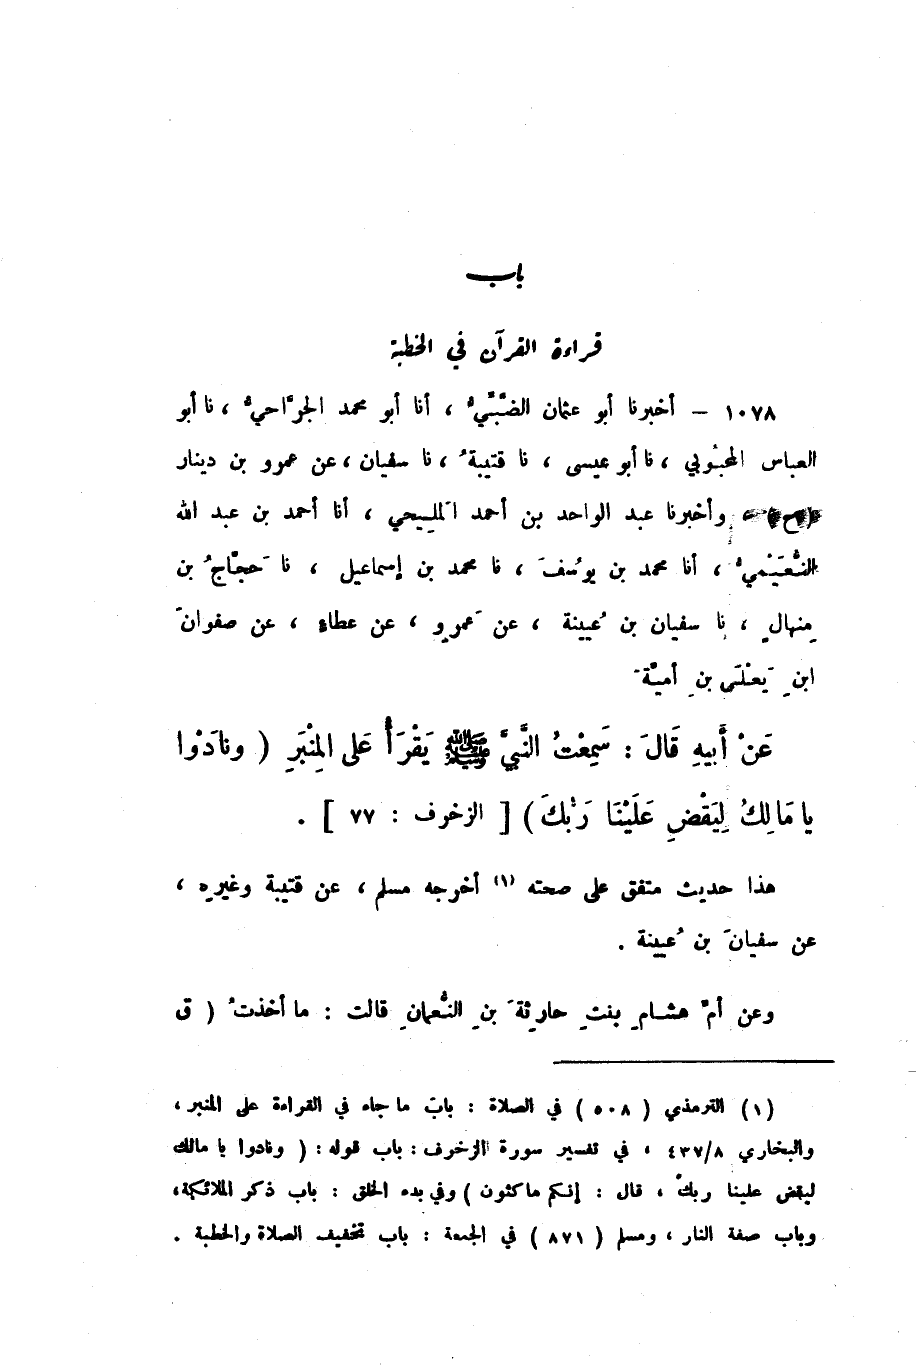 باب
قراءة القرآن في الخطبة
١٠٧٨ – أخبرنا أبو عثمان الضَّبِّيُّ ، أنا أبو محمد الجرَّاحيُّ ، نا أبو
العباس المحبُوبي ، نا أبو عيسى ، نا قتيبةُ ، نا سفيان ، عن عمرو بن دينار
(ح) وأخبرنا عبد الواحد بن أحمد المَلِيحي ، أنا أحمد بن عبد الله
النُّعَيْمِيُّ ، أنا محمد بن يوُسُفَ ، نا محمد بن إسماعيل ، نا حَجَّاجُ بن
مِنهالٍ ، نا سفيان بن عُيينة ، عن عَمروٍ ، عن عطاءٍ ، عن صفوانَ
ابنِ يَعْلَى بنِ أميَّةَ
عَنْ أَبيهِ قَالَ : سَمِعْتُ النَّبِيَّ ﷺ يَقْرَأُ عَلى المِنْبَرِ ( ونادَوْا
يا مَالِكُ لِيَقْضِ عَلَيْنَا رَبُّكَ ) [ الزخرف : ٧٧ ] .
هذا حديث متفق على صحته (١) أخرجه مسلم ، عن قتيبة وغيرِه ،
عن سفيانَ بن عُيينة .
وعن أمِّ هشامٍ بنتِ حارِثةَ بنِ النُّعمانِ قالت : ما أخذتُ ( ق
(١) الترمذي ( ٥٠٨ ) في الصلاة : باب ما جاء في القراءة على المنبر ،
والبخاري ٤٣٧/٨ ، في تفسير سورة الزخرف : باب قوله : ( ونادوا يا مالك
ليقض علينا ربك ، قال : إنكم ماكثون ) وفي بدء الخلق : باب ذكر الملائكة ،
وباب صفة النار ، ومسلم ( ٨٧١ ) في الجمعة : باب تخفيف الصلاة والخطبة .